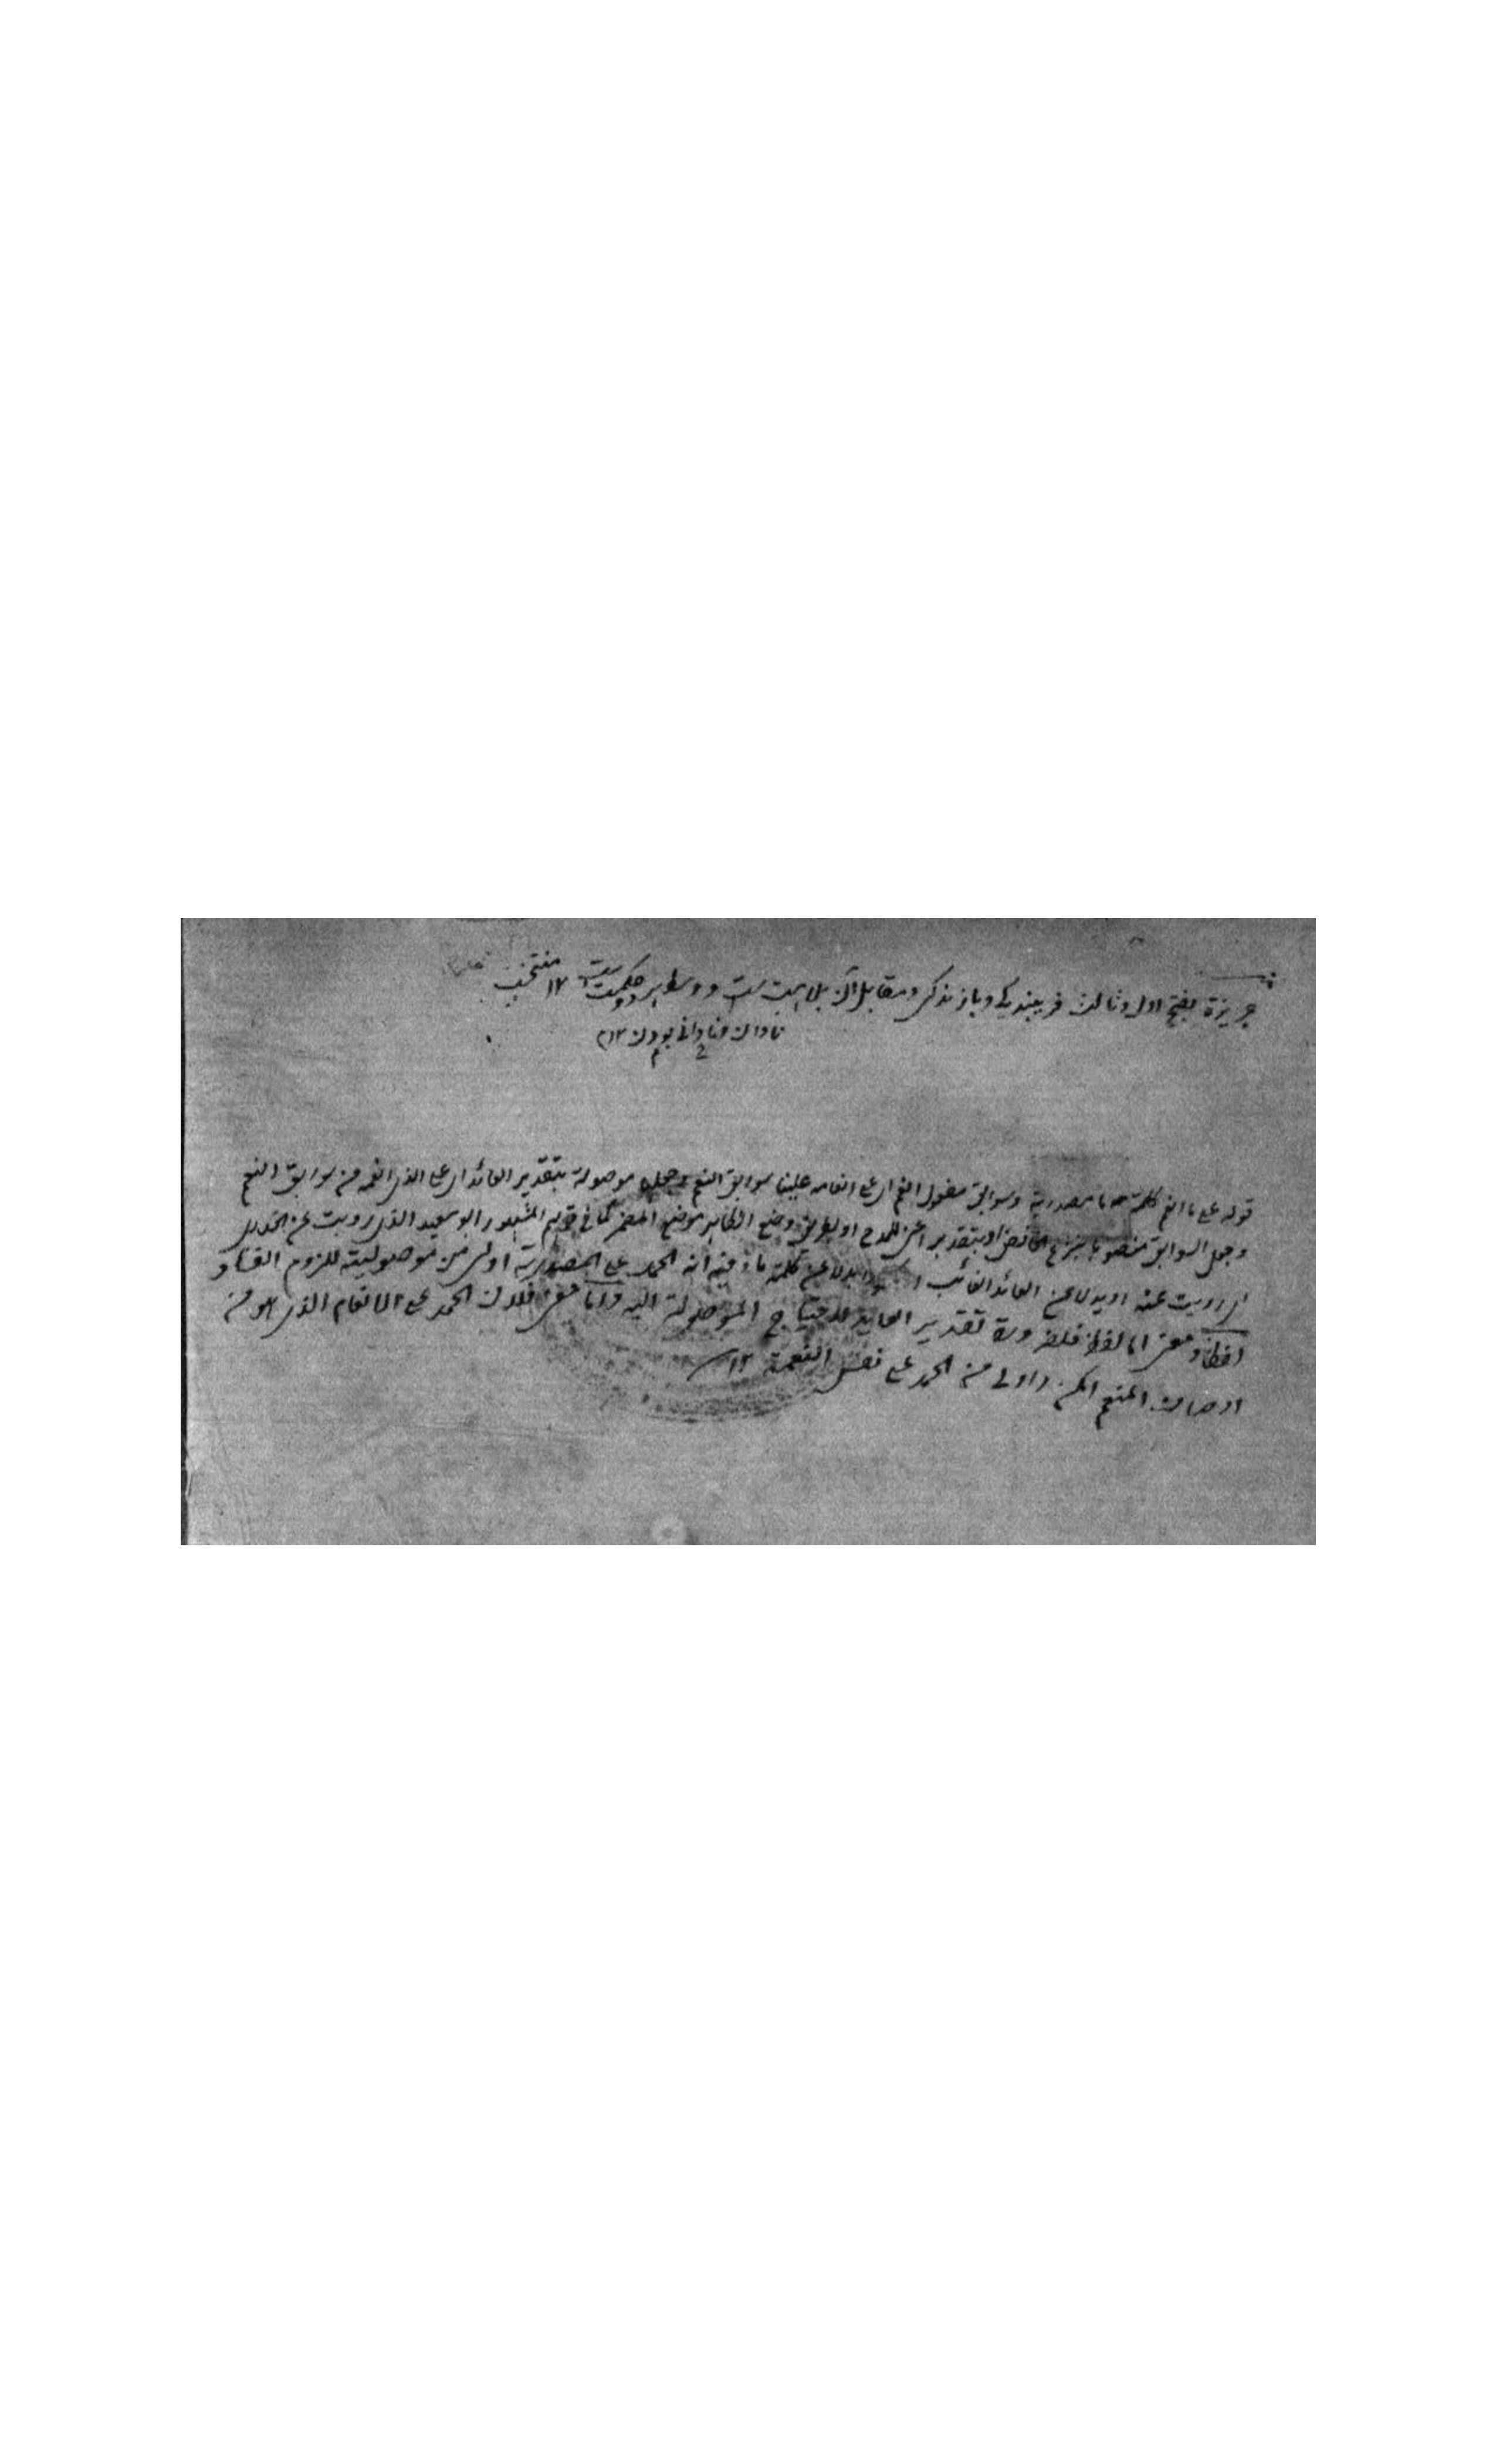 جربزة بفتح اول و ثالث فریبندگی و باز ندگی و مقابل آن بلاهت ست و وسط هر دو حکمت ست ۱۲ منتخب
نادان و نادانی بودن ۱۲
قوله على ما انعم كلمة ما مصدرية وسوابق مفعول انعم اى على انعامه علينا سوابق النعم وجعله موصولة بتقدير العائد اى على الذى انعمه من سوابق النعم
وجعل السوابق منصوبا بنزع الخافض او بتقدير اعنى للمدح او بطريق وضع الظاهر موضع المضمر كما فى قولهم المشهور ابو سعيد الذى رويت عن الخدرى
اى رويت عنه او بدلا عن العائد الغائب او بدلا عن كلمة ما وفيه ان الحمد على المصدرية اولى من موصوليته للزوم الفساد
لفظا ومعنى اما لفظا فلضرورة تقدير العايد لاحتياج الموصولة اليه واما معنى فلان الحمد على الانعام الذى هو من
اوصاف المنعم امكن واولى من الحمد على نفس النعمة ۱۲